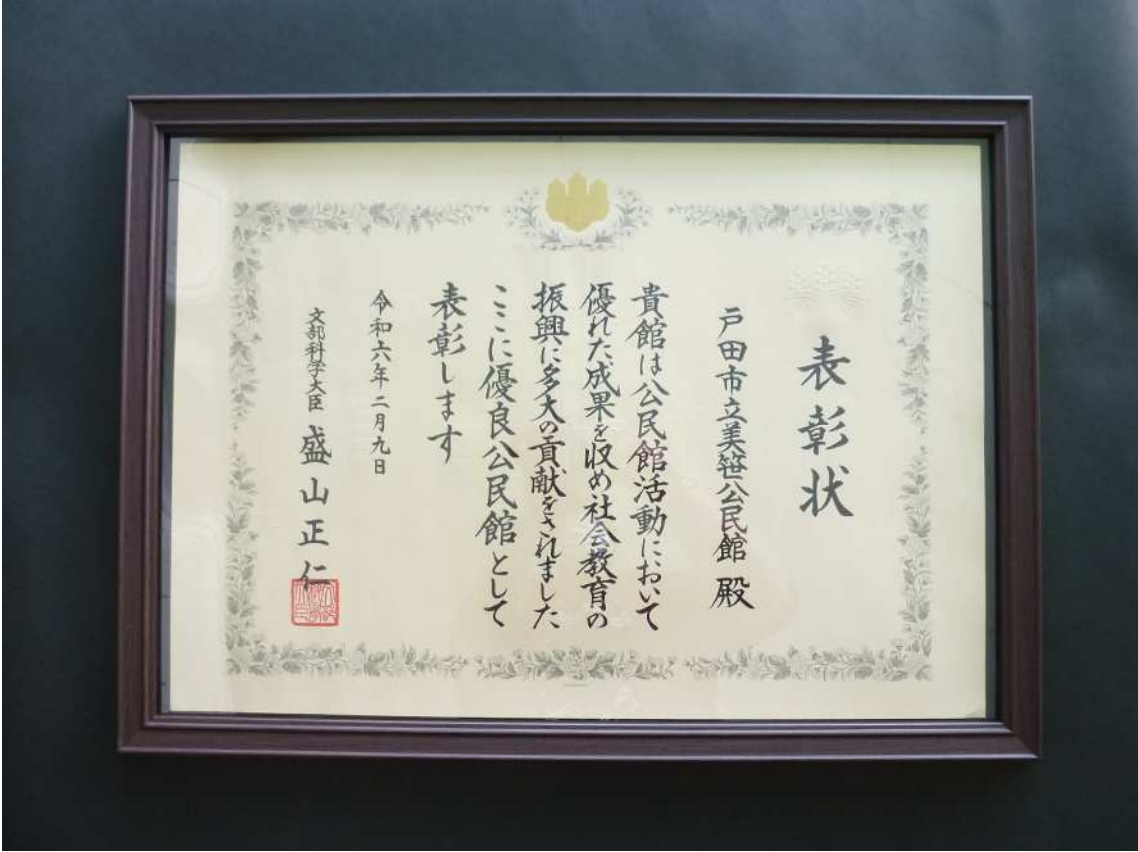 表彰状
戸田市立美笹公民館 殿
貴館は公民館活動において
優れた成果を収め社会教育の
振興に多大の貢献をされました
ここに優良公民館として
表彰します
令和六年二月九日
文部科学大臣 盛山正仁